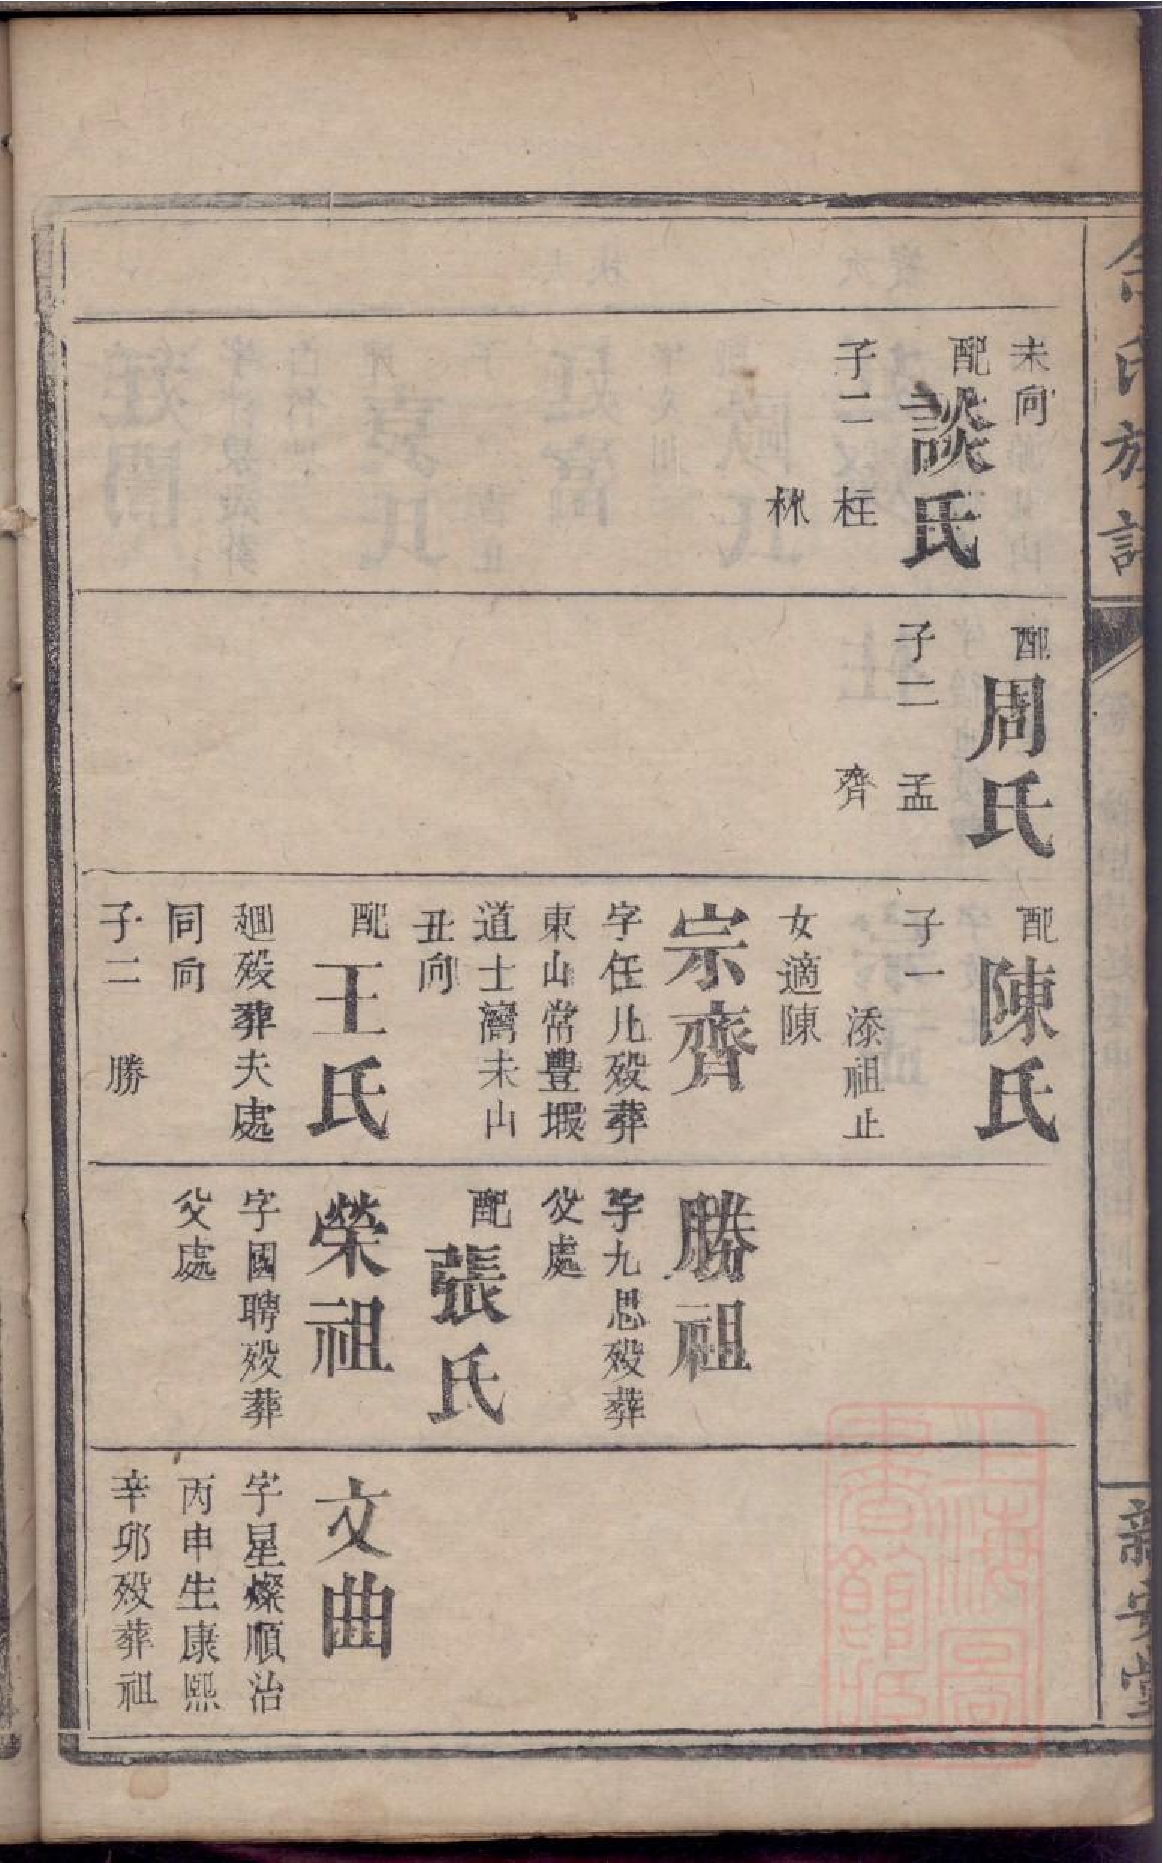 氏族
新安堂
未向
配談氏
子二 柱
林
配周氏
子二 孟
齊
配陳氏
子一
添祖止
女適陳
宗齊
字任儿殁葬
東山常豐堰
道士灣未山
丑向
配王氏
廻殁葬夫處
同向
子二 勝
勝祖
字九思殁葬
父處
配張氏
榮祖
字國聘殁葬
父處
文曲
字星燦順治
丙申生康熙
辛卯殁葬祖
上海圖
書館藏